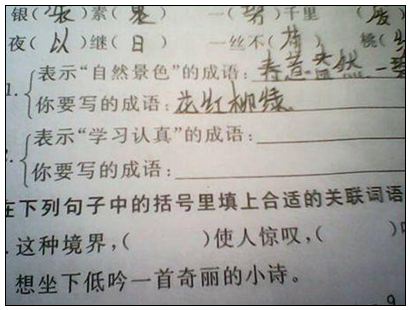 银(装)素(裹) 一(努)千里 (废)
夜(以)继(日) 一丝不(苟) 桃(
1.表示“自然景色”的成语：春意盎然 一碧
你要写的成语：花红柳绿
2.表示“学习认真”的成语：
你要写的成语：
在下列句子中的括号里填上合适的关联词语
.这种境界，( )使人惊叹，( )
想坐下低吟一首奇丽的小诗。
9